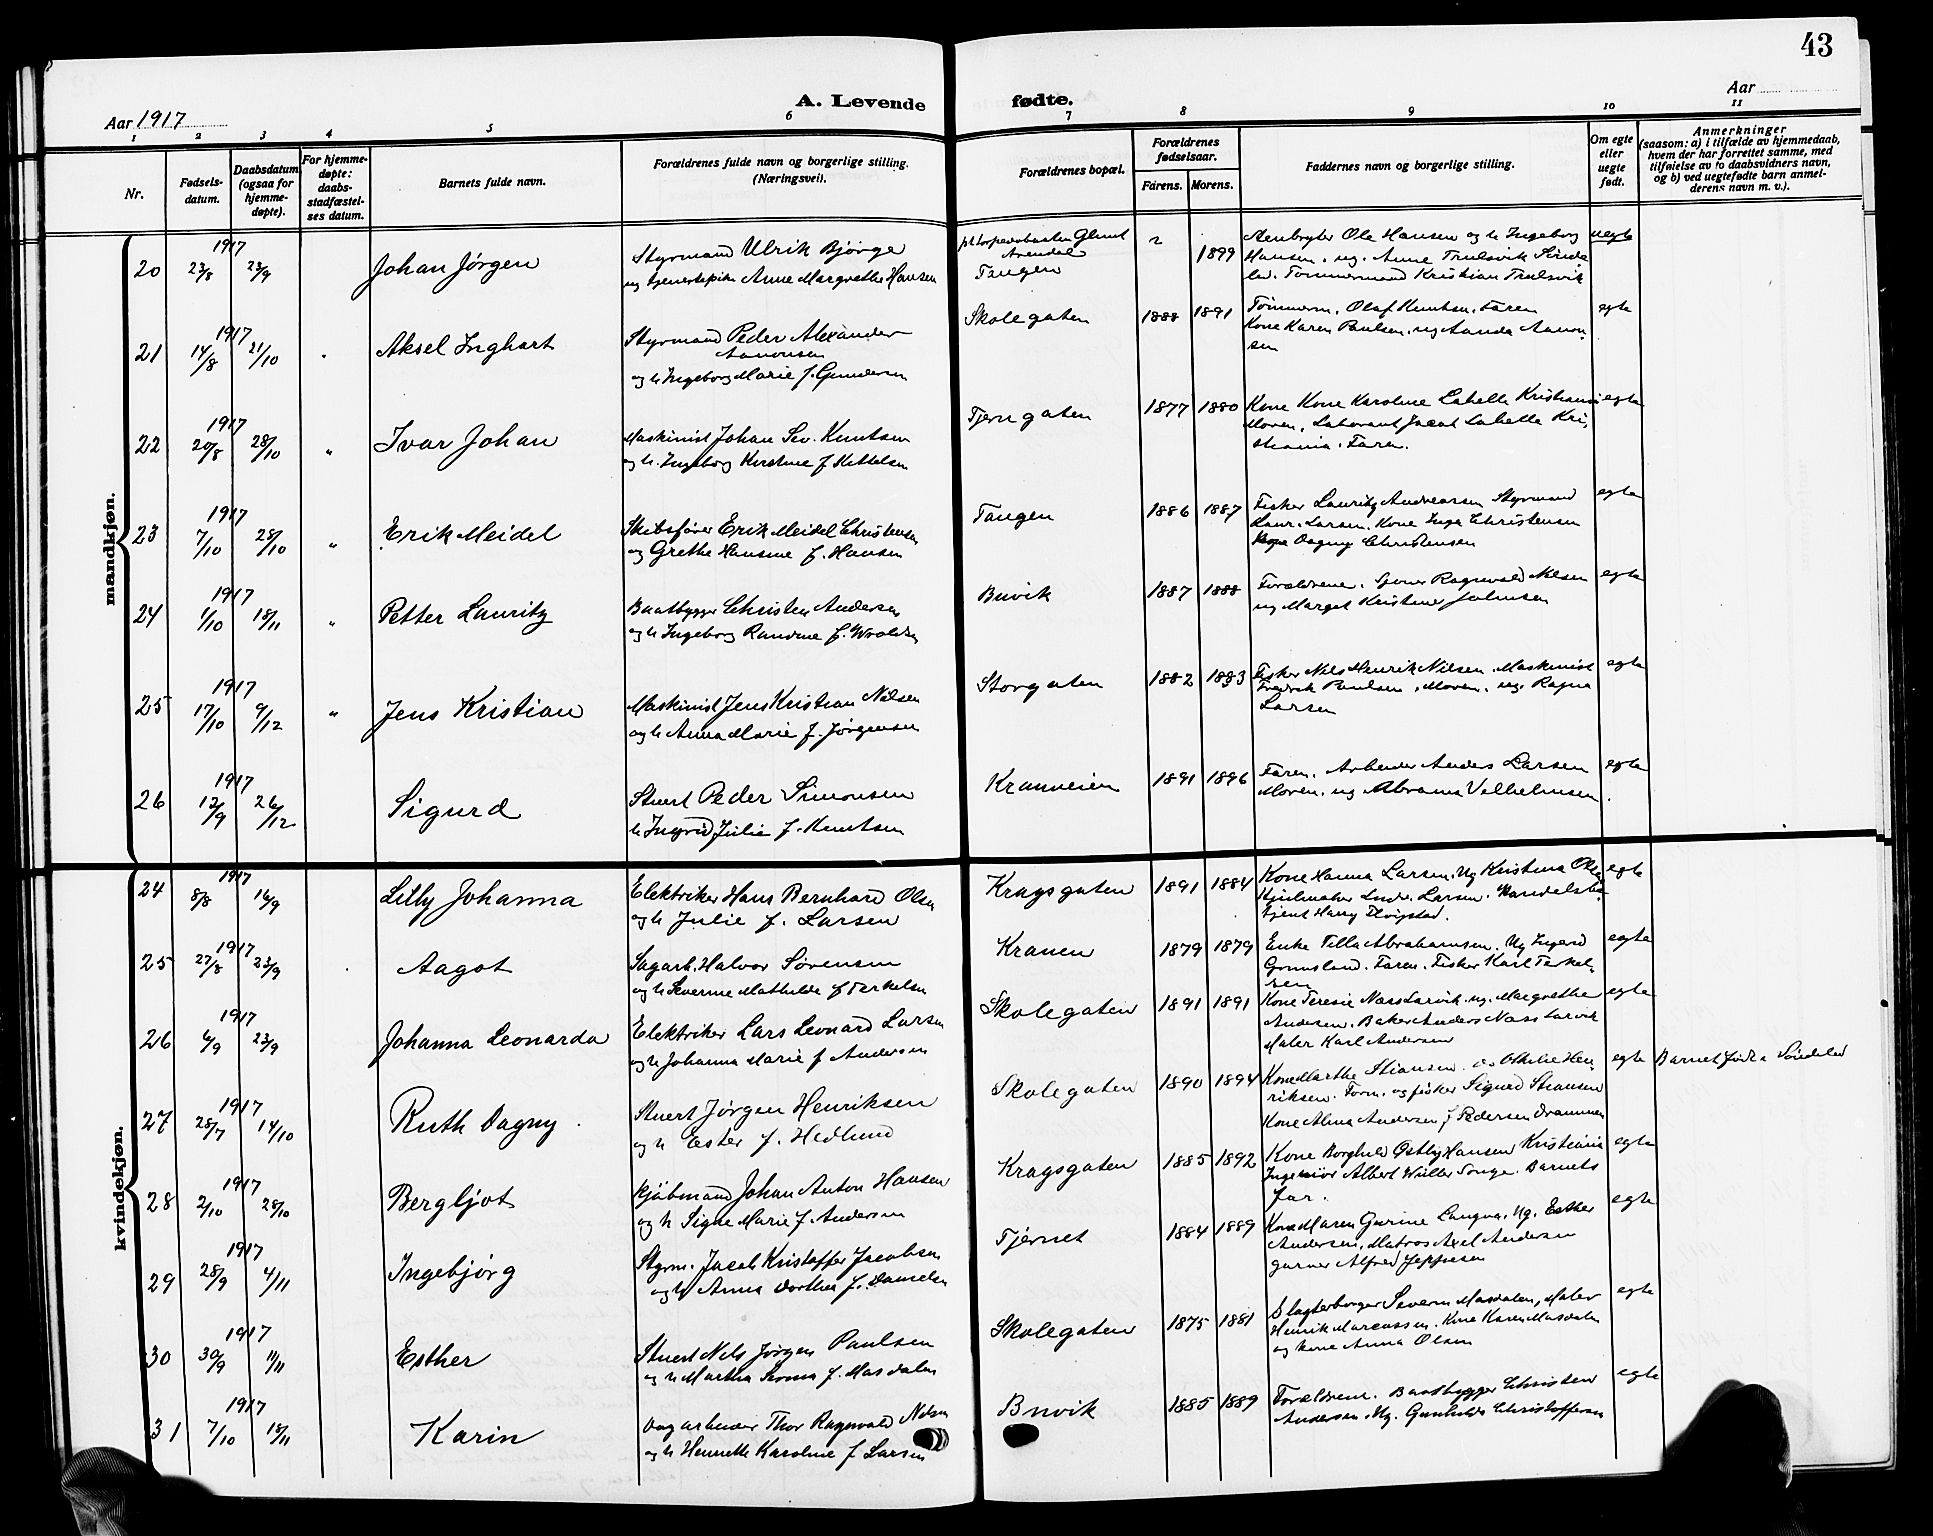 43
A. Levende fødte.
Aar 1917
Aar
1 2 3 4 5 6 7 8 9 10 11
Nr.
Fødsels-
datum.
Daabsdatum
(ogsaa for
hjemme-
døpte).
For hjemme-
døpte:
daabs-
stadfæstel-
ses datum.
Barnets fulde navn.
Forældrenes fulde navn og borgerlige stilling.
(Næringsvei).
Forældrenes bopæl.
Forældrenes
fødselsaar.
Farens. Morens.
Faddernes navn og borgerlige stilling.
Om egte
eller
uegte
født.
Anmerkninger
(saasom: a) i tilfælde av hjemmedaab,
hvem der har forrettet samme, med
tilføielse av to daabsvidners navn,
og b) ved uegtefødte barn anmel-
derens navn m. v.).
mandkjøn.
1917
20 23/8 23/9 Johan Jørgen
Styrmand Ulrik Bjørge
og tjenestepike Anne Margrethe Hansen
Glimt
Arendal
Tangen
1899
Ole Hansen og h Ingeborg
Hansen. ug. Anne Trulsvik
Tømmermand Kristian Trulsvik
uegte
1917
21 14/8 21/10 Aksel Inghart
Styrmand Peder Alexander
Aanonsen
og h Ingeborg Marie f. Gundersen
Skolegaten 1888 1891
Tømmerm. Olaf Knutsen. Faren
Kone Karen Paulsen. ug Aanon-
sen
egte
1917
22 20/8 28/10 " Ivar Johan
Maskinist Johan Sev. Knutsen
og h. Ingeborg Kirstine f Kittelsen
Tjerngaten 1877 1880
Kone Kone Karoline Labella Kristiania
Moren. Laborant Jacob Labella Kri-
stiania. Faren.
egte
1917
23 7/10 28/10 " Erik Meidel
Skibsfører Erik Meidel Christensen
og Grethe Hansine f. Hansen
Tangen 1886 1887
Fisker Lauritz Andreassen Styrmand
Laur. Larsen. Kone Inga Christensen
Dagny Christensen
egte
1917
24 1/10 18/11 " Petter Lauritz
Baatbygger Christen Andersen
og h Ingeborg Randine f. Wroldsen
Buvik 1887 1888
Forældrene. Ragnvald Nilsen
og Margit Kristine Johnsen
egte
1917
25 17/10 9/12 " Jens Kristian
Maskinist Jens Kristian Nilsen
og h Anna Marie f. Jørgensen
Storgaten 1882 1883
Fisker Nils Henrik Nilsen. Maskinist
Fredrik Paulsen. Moren. ug. Ragna
Larsen
egte
1917
26 12/9 26/12 Sigurd
Stuert Peder Simonsen
h Ingrid Julie f. Knutsen
Kranveien 1891 1896
Faren. Arbeider Anders Larsen
Moren. ug Abrama Vilhelmsen.
egte
kvindekjøn.
1917
24 8/8 16/9 Lilly Johanna
Elektriker Hans Bernhard Olsen
og h Julie f. Larsen
Kragsgaten 1891 1884
Kone Hanna Larsen. Ug Kristina Olsen
Hjulmaker Larsen. Handelsbe-
tjent Harry
egte
1917
25 27/8 23/9 Aagot
Sagarb. Halvor Sørensen
og h Severine Mathilde f Terkelsen
Kranen 1879 1879
Enke Tilla Abrahamsen. Ug Ingerid
Grimsland. Faren. Fisker Karl Terkel-
sen
egte
1917
26 6/9 23/9 Johanna Leonarda
Elektriker Lars Leonard Larsen
og h Johanna Marie f Andersen
Skolegaten 1891 1891
Kone Teresie Næss Larvik. ug. Margrethe
Andersen. Baker Anders Næss Larvik
Maler Karl Andersen
egte
1917
27 28/7 14/10 Ruth Dagny.
Stuert Jørgen Henriksen
og h Ester f. Hedlund
Skolegaten 1890 1894
Kone Marthe Stiansen Othilie Hen-
riksen. Form. og fisker Sigurd Stiansen
Kone Alma Andersen f Pedersen Drammen
egte
Barnet født i Søndeled
1917
28 2/10 28/10 Bergljot
Kjøbmand Johan Anton Hansen
og h Signe Marie f. Andersen
Kragsgaten 1885 1892
Kone Borghild Østby Hansen Kristiania
Ingeniør Albert Müller Songe. Barnets
Far.
egte
1917
29 28/9 4/11 Ingebjørg
Styrm. Jacob Kristoffer Jacobsen
og h Anna Dorthea f. Danielsen
Tjernet 1884 1889
Kone Maren Gurine Langva. Ug. Esther
Andersen. Matros Axel Andersen
Alfred Jeppesen
egte
1917
30 30/9 11/11 Esther
Stuert Nils Jørgen Paulsen
og h Martha f. Masdalen
Skolegaten 1875 1881
Slagterborger Severin Masdalen, Maler
Henrik Marcussen. Kone Karen Masdalen
og kone Anna Olsen
egte
1917
31 7/10 18/11 Karin
Dagarbeider Thor Ragnvald Nilsen
og h Henriette Karoline f Larsen
Buvik 1885 1889
Forældrene. Baatbygger Christen
Andersen. Ug. Gunhilda Christoffersen
egte